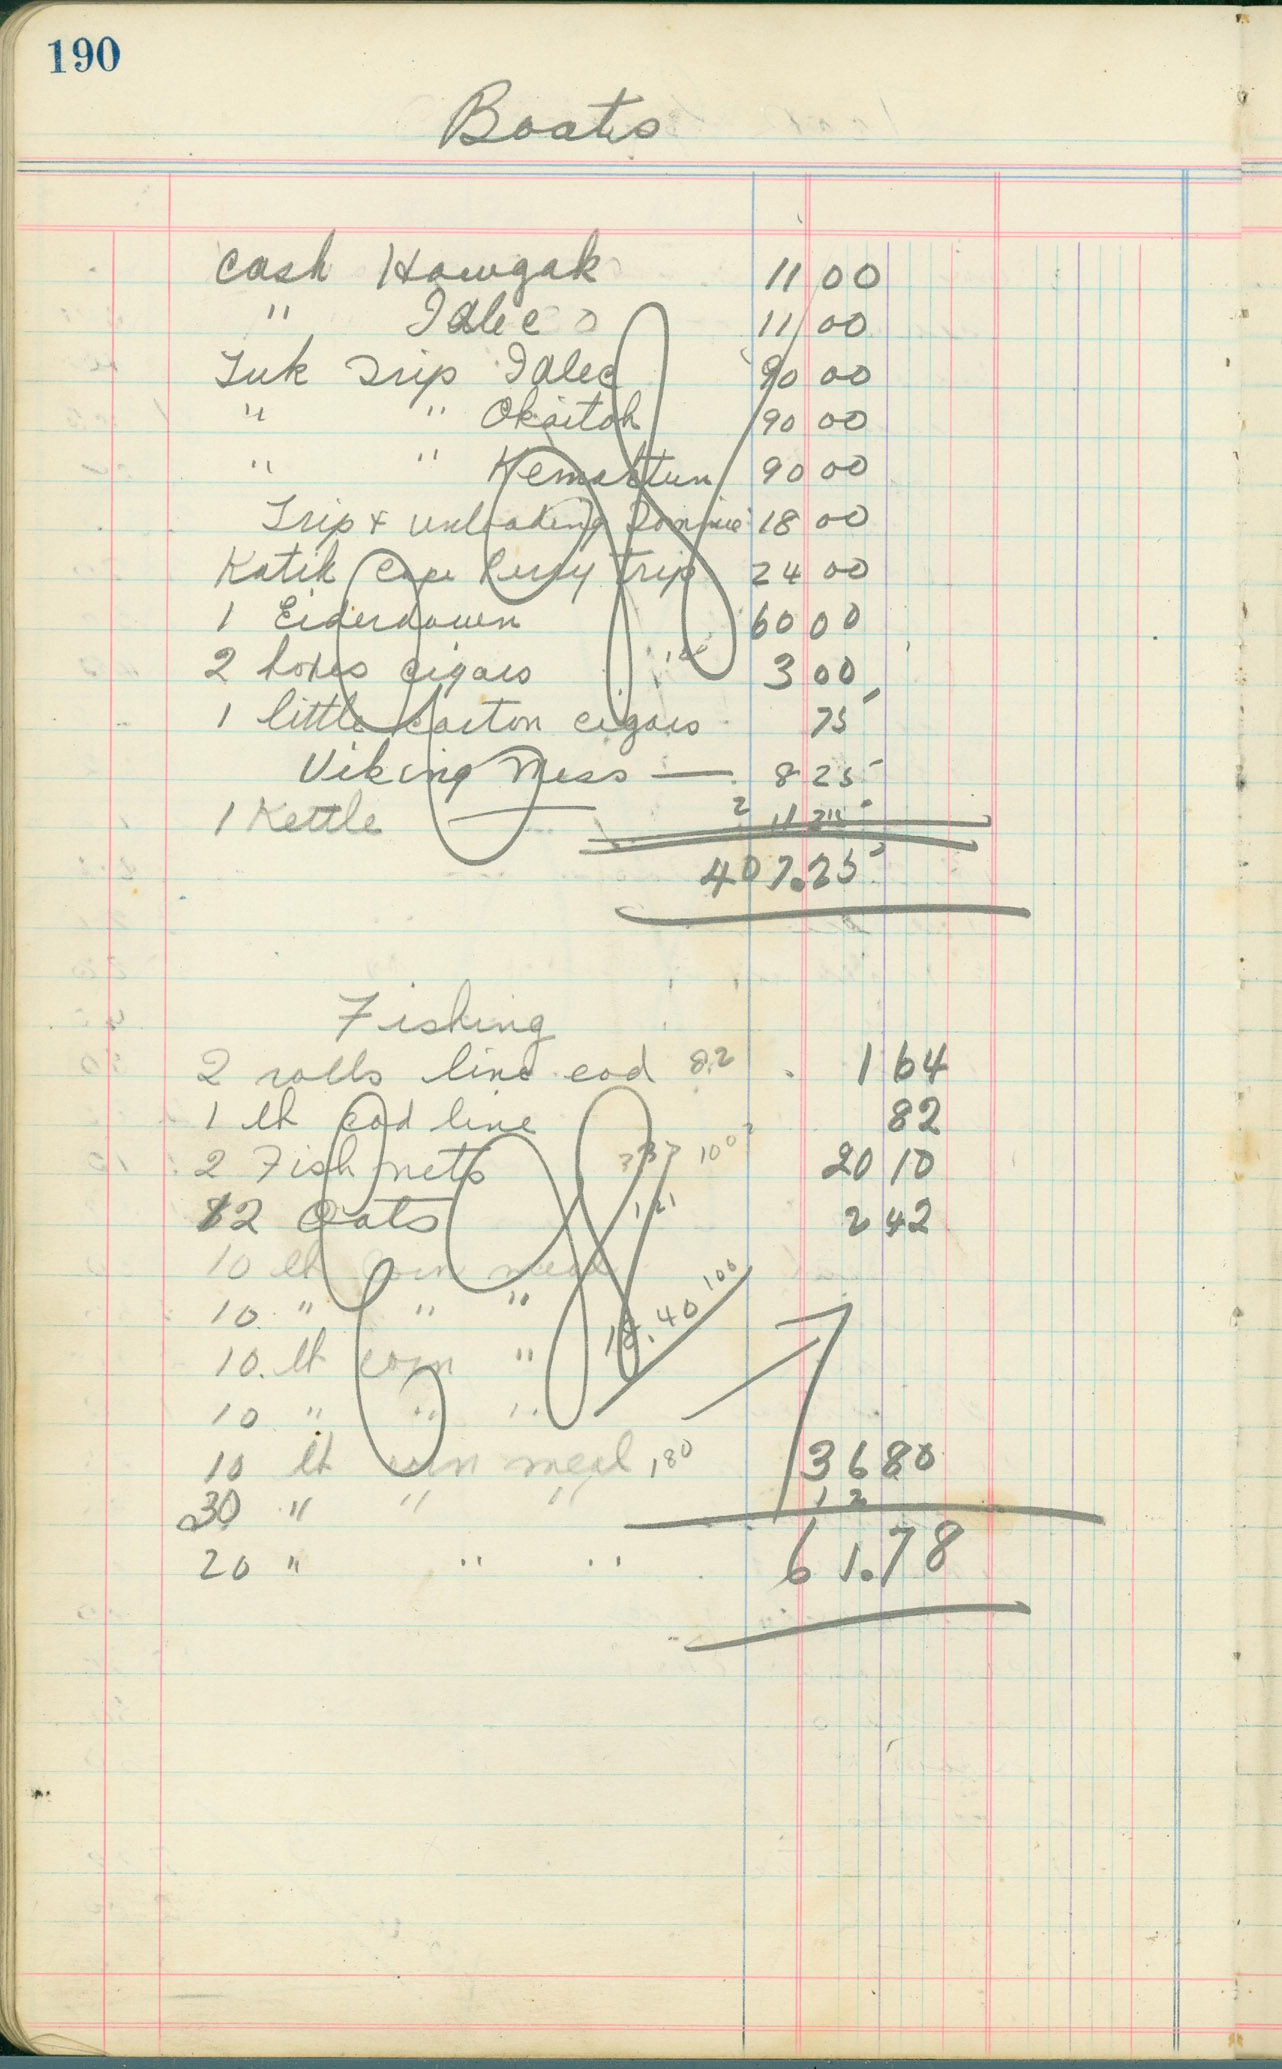 190
Boats
Cash Howgak 11 00
" Idlee 11 00
Tuk Trip Idlee 90 00
" " Okaitok 90 00
" " Kemaktun 90 00
Trip & unloading Donnie 18 00
Katik Cape Perry trip 24 00
1 Eiderdown 60 00
2 boxes cigars 3 00
1 little carton cigars 75
Viking Mess — 8 25
1 Kettle
407.25
Fishing
2 rolls line cod 82 1 64
1 lb cod line 82
2 Fish nets 20 10
2 Oats 1 21 2 42
10 lb corn meal
10 " " "
10. lb corn "
10 " " "
18.40 100
10 lb corn meal 180 36 80
30 " " "
20 " " "
61.78